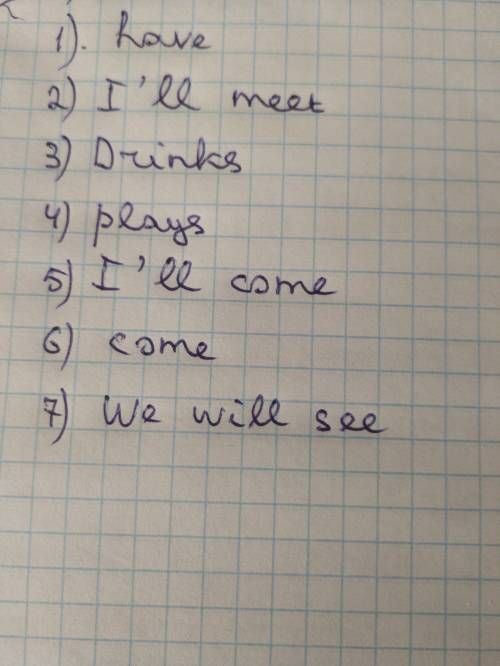 1). have
2) I'll meet
3) Drinks
4) plays
5) I'll come
6) come
7) We will see